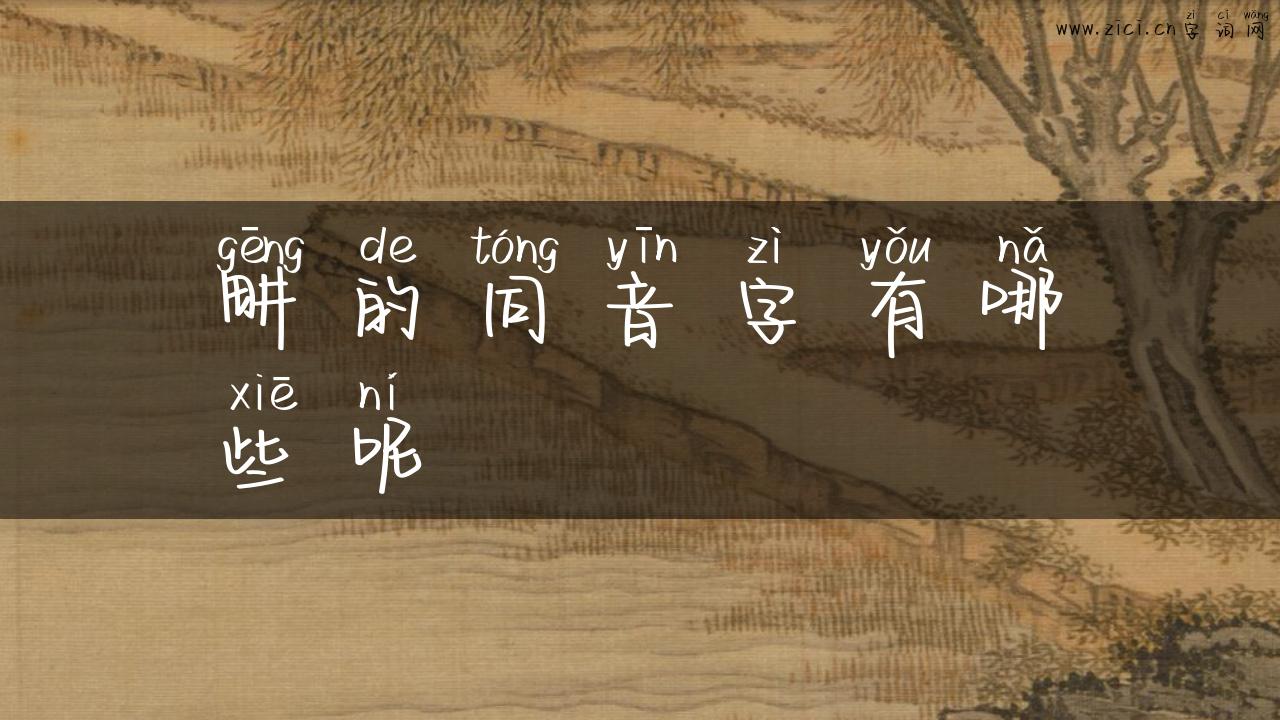 zì cí wǎng
www.zici.cn 字词网
gēng de tóng yīn zì yǒu nǎ
畊的同音字有哪
xiē ní
些呢